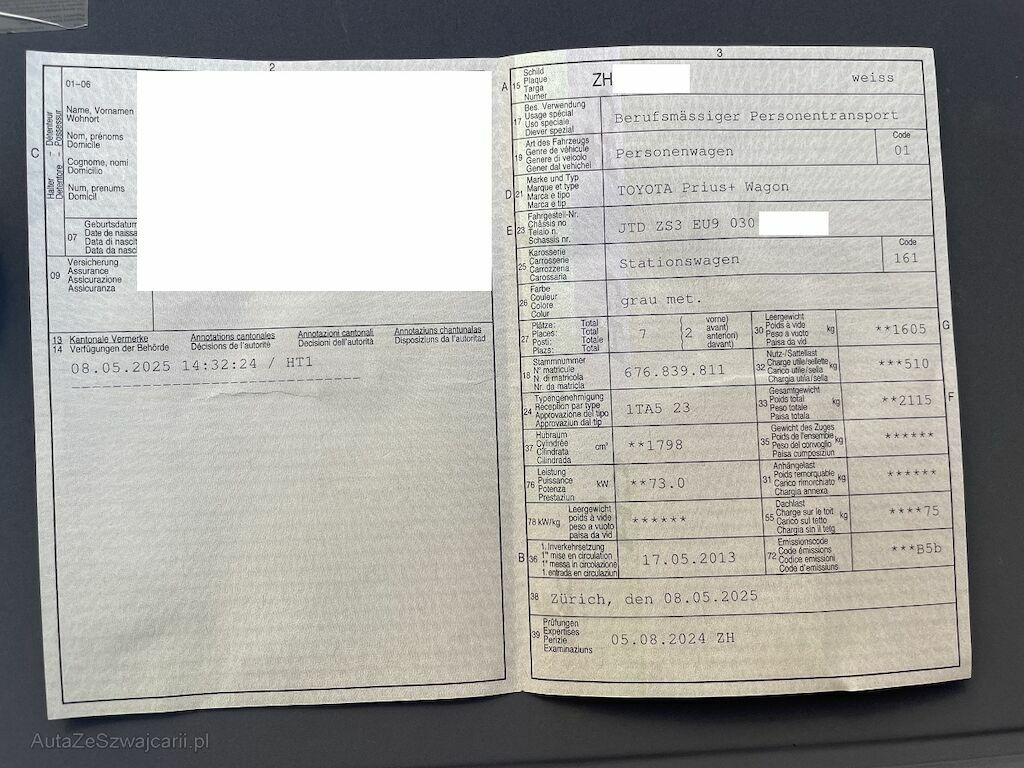 2
01–06
Name, Vornamen
Wohnort
Nom, prénoms
Domicile
Cognome, nomi
Domicilio
Num, prenums
Domicil
C
Halter – Détenteur
Detentore – Possessur
07
Geburtsdatum
Date de naissa
Data di nascit
Data da nasc
09
Versicherung
Assurance
Assicurazione
Assicuranza
13 Kantonale Vermerke
14 Verfügungen der Behörde
Annotations cantonales
Décisions de l'autorité
Annotazioni cantonali
Decisioni dell'autorità
Annotaziuns chantunalas
Disposiziuns da l'autoritad
08.05.2025 14:32:24 / HT1
3
A 15 Schild
Plaque
Targa
Numer
ZH
weiss
17 Bes. Verwendung
Usage spécial
Uso speciale
Diever spezial
Berufsmässiger Personentransport
19 Art des Fahrzeugs
Genre de véhicule
Genere di veicolo
Gener dal vehichel
Personenwagen
Code
01
D 21 Marke und Typ
Marque et type
Marca e tipo
Marca e tip
TOYOTA Prius+ Wagon
E 23 Fahrgestell-Nr.
Châssis no
Telaio n.
Schassis nr.
JTD ZS3 EU9 030
25 Karosserie
Carrosserie
Carrozzeria
Carossaria
Stationswagen
Code
161
26 Farbe
Couleur
Colore
Colur
grau met.
27 Plätze: Total
Places: Total
Posti: Totale
Plazs: Total
7 {2 vorne)
avant)
anteriori)
davant)
30 Leergewicht
Poids à vide
Peso a vuoto
Paisa da vid
kg
**1605
G
18 Stammnummer
N° matricule
N. di matricola
Nr. da matricla
676.839.811
32 Nutz-/Sattellast
Charge utile/sellette
Carico utile/sella
Chargia utila/sella
kg
***510
24 Typengenehmigung
Réception par type
Approvazione del tipo
Approvaziun dal tip
1TA5 23
33 Gesamtgewicht
Poids total
Peso totale
Paisa totala
kg
**2115
F
37 Hubraum
Cylindrée
Cilindrata
Cilindrada
cm³
**1798
35 Gewicht des Zuges
Poids de l'ensemble
Peso del convoglio
Paisa cumposiziun
kg
******
76 Leistung
Puissance
Potenza
Prestaziun
kW
**73.0
31 Anhängelast
Poids remorquable
Carico rimorchiato
Chargia annexa
kg
******
78 kW/kg
Leergewicht
poids à vide
peso a vuoto
paisa da vid
******
55 Dachlast
Charge sur le toit
Carico sul tetto
Chargia sin il tetg
kg
****75
B 36 1. Inverkehrsetzung
1re mise en circulation
1a messa in circolazione
1. entrada en circulaziun
17.05.2013
72 Emissionscode
Code émissions
Codice emissioni
Code d'emissiuns
***B5b
38 Zürich, den 08.05.2025
39 Prüfungen
Expertises
Perizie
Examinaziuns
05.08.2024 ZH
AutaZeSzwajcarii.pl